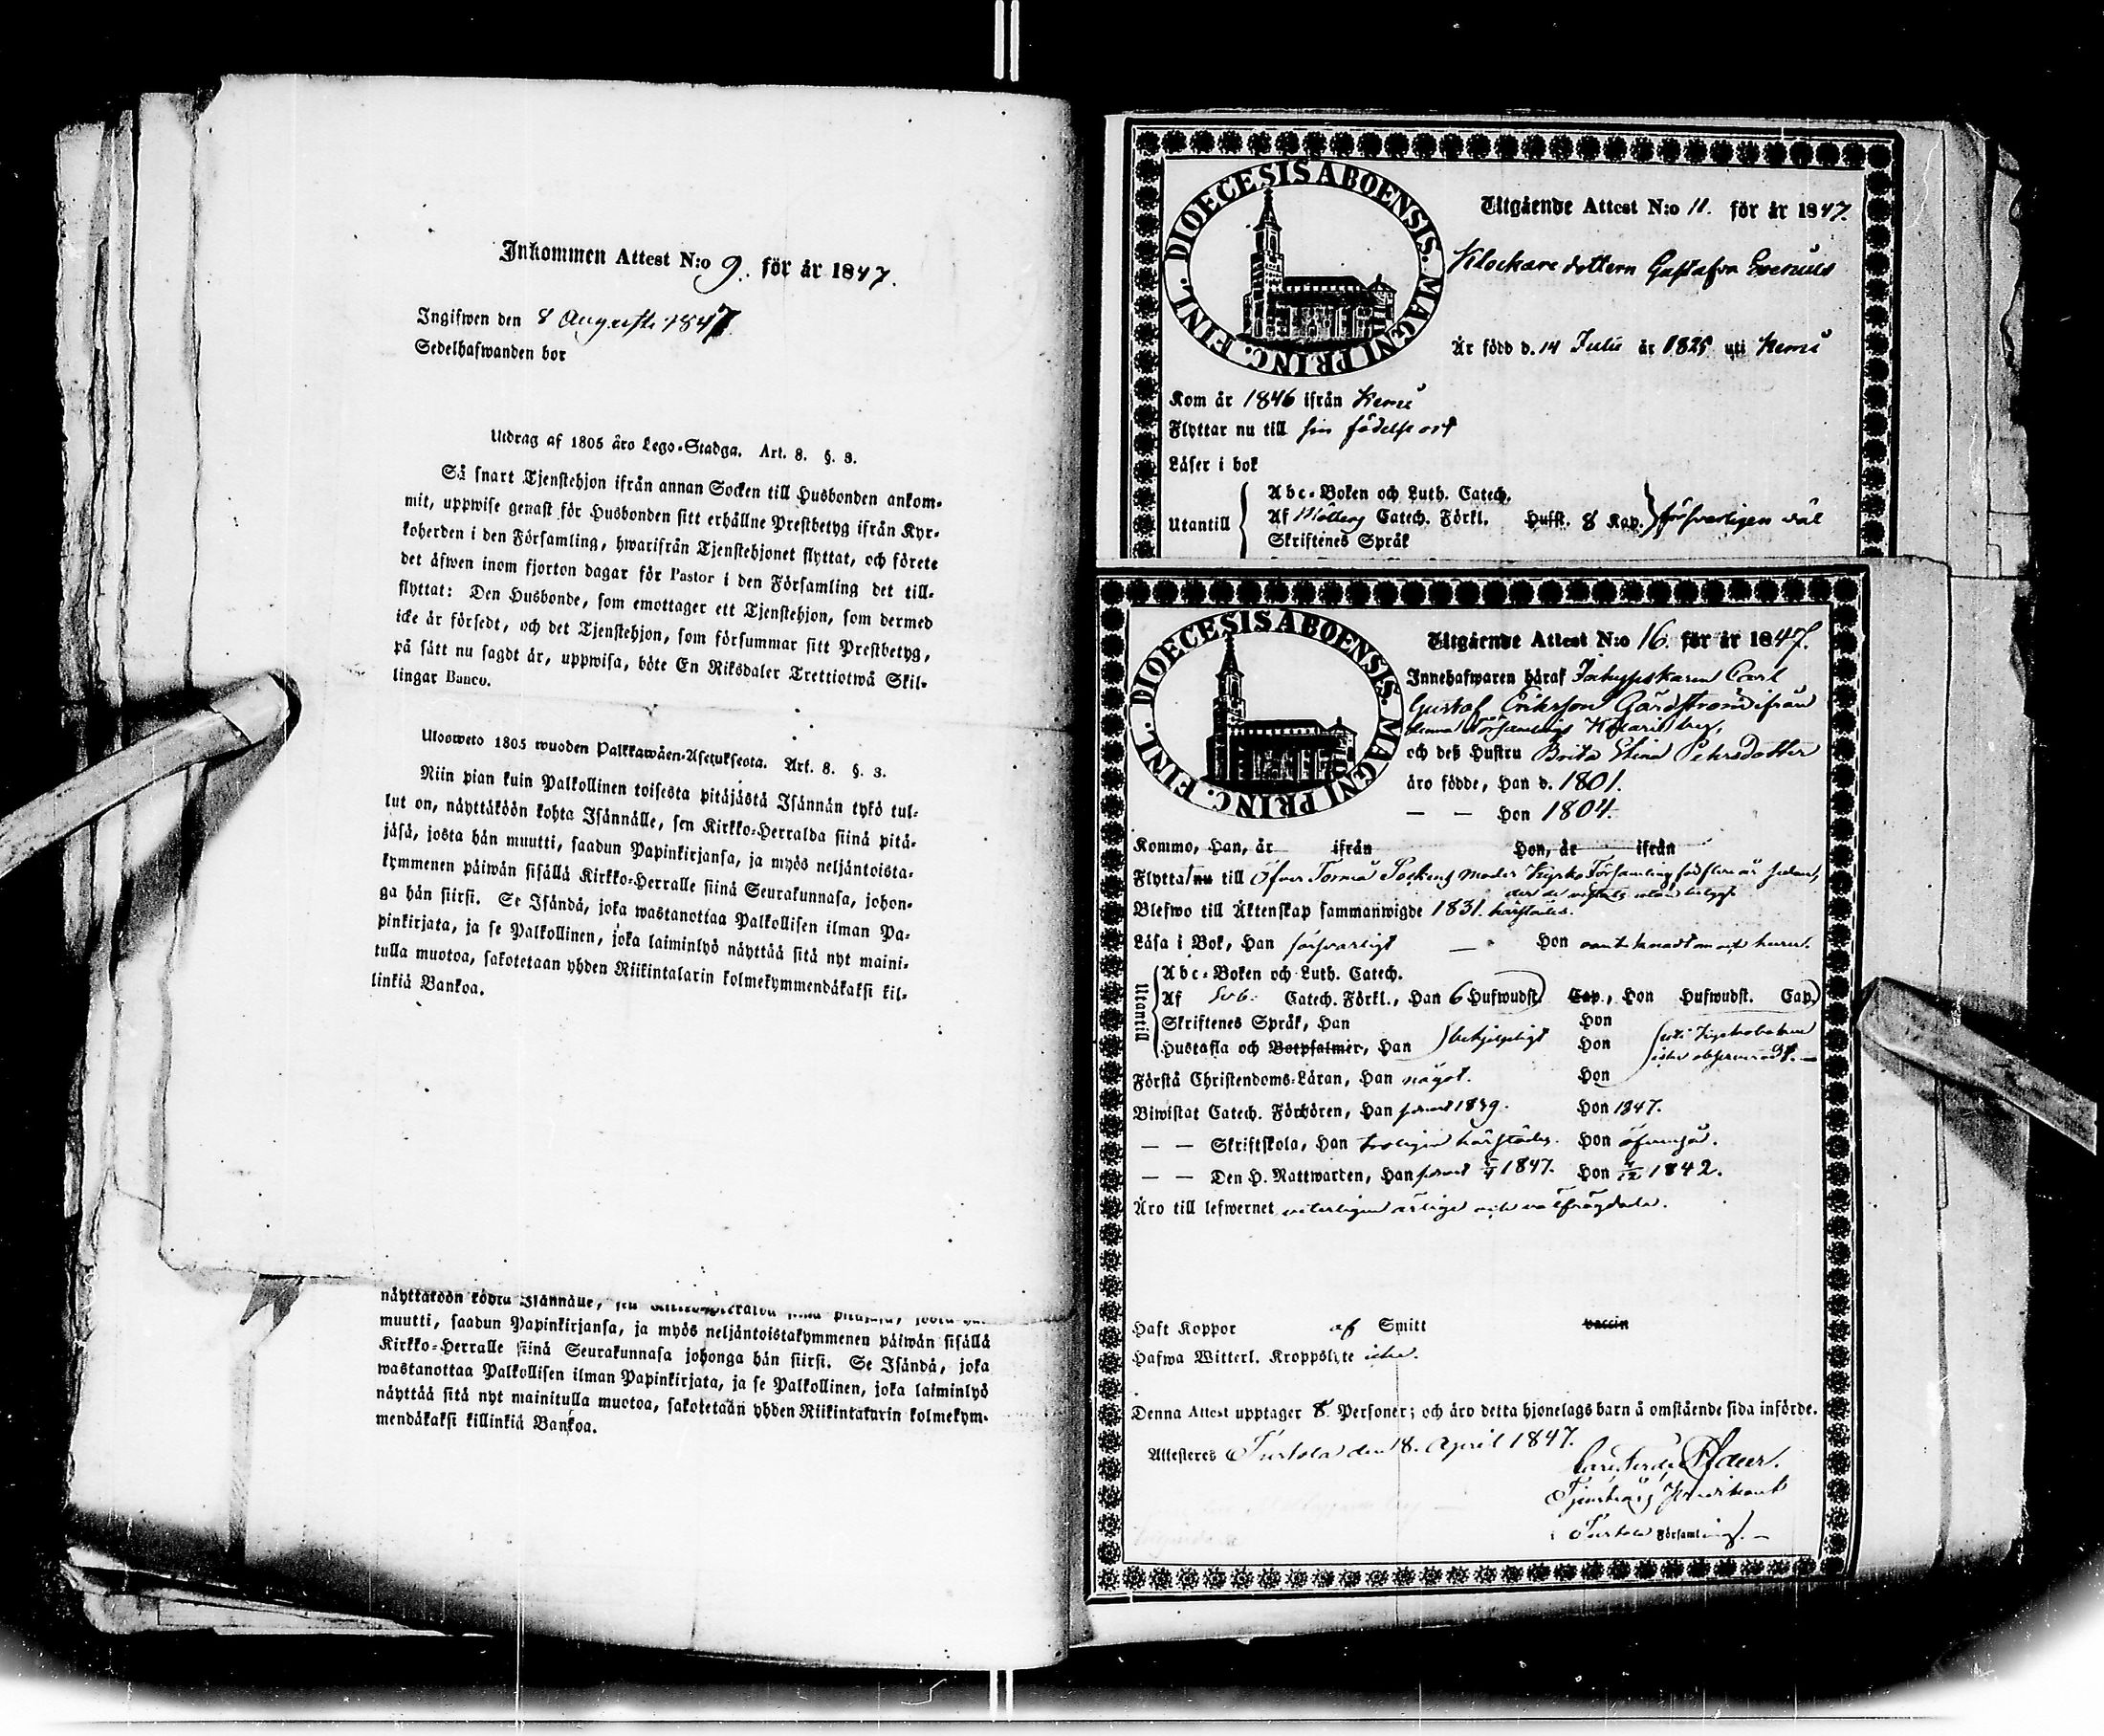 Inkommen Attest N:o 9. för år 1847.
Ingifwen den 8 Augusti 1847
Sedelhafwanden bor
Utdrag af 1805 åro Lego-Stadga. Art. 8. §. 3.
Så snart Tjenstehjon ifrån annan Socken till Husbonden ankom-
mit, uppwise genast för Husbonden sitt erhållne Prestbetyg ifrån Kyr-
koherden i den Församling, hwarifrån Tjenstehjonet flyttat, och förete
det äfwen inom fjorton dagar för Pastor i den Församling det till-
flyttat: Den Husbonde, som emottager ett Tjenstehjon, som dermed
icke är försedt, och det Tjenstehjon, som försummar sitt Prestbetyg,
på sätt nu sagdt är, uppwisa, böte En Riksdaler Trettiotwå Skil-
lingar Banco.
Ulosweto 1805 wuoden Palkkawäen-Asetuksesta. Art. 8. §. 3.
Niin pian kuin Palkollinen toisesta pitäjästä Isännän tykö tul-
lut on, näyttäköön kohta Isännälle, sen Kirkko-Herralda siinä pitä-
jäsä, josta hän muutti, saadun Papinkirjansa, ja myös neljäntoista-
kymmenen päiwän sisällä Kirkko-Herralle siinä Seurakunnasa, johon-
ga hän siirsi. Se Isändä, joka wastanottaa Palkollisen ilman Pa-
pinkirjata, ja se Palkollinen, joka laiminlyö näyttää sitä nyt maini-
tulla muotoa, sakotetaan yhden Riikintalarin kolmekymmendäkaksi kil-
linkiä Bankoa.
näyttäköön kohta Isännälle,
muutti, saadun Papinkirjansa, ja myös neljäntoistakymmenen päiwän sisällä
Kirkko-Herralle siinä Seurakunnasa johonga hän siirsi. Se Isändä, joka
wastanottaa Palkollisen ilman Papinkirjata, ja se Palkollinen, joka laiminlyö
näyttää sitä nyt mainitulla muotoa, sakotetaan yhden Riikintalarin kolmekym-
mendäkaksi killinkiä Bankoa.
DIOECESIS ABOENSIS. MAGNI PRINC. FINL.
Utgående Attest N:o 11. för år 1847.
Klockare dottern Gustafva
Är född d. 14 Julii år 1825 uti Kemi
Kom år 1846 ifrån Kemi
Flyttar nu till sin födelse ort
Läser i bok
Abc-Boken och Luth. Catech.
Utantill Af Möllers Catech. Förkl. Hufst. 8 Kap. försvarligen väl
Skriftenes Språk
DIOECESIS ABOENSIS. MAGNI PRINC. FINL.
Utgående Attest N:o 16. för år 1847.
Innehafwaren häraf Carl
Gustaf Eriksson Gärdström ifrån
denna Församlings Kolari by,
och deß Hustru Brita Stina Pehrsdotter
äro födde, Han d. 1801.
— — Hon 1804.
Kommo, Han, år ifrån Hon, år ifrån
Flytta nu till Öfver Torneå Sockens Moder Kyrko Församling
Blefwo till Äktenskap sammanwigde 1831. härstädes.
Läsa i Bok, Han försvarligt — Hon
Abc-Boken och Luth. Catech.
Utantill Af Catech. Förkl., Han 6 Hufwudst. Cap., Hon Hufwudst. Cap.
Skriftenes Språk, Han Hon
Hustafla och Botpsalmer, Han behjelpligt Hon
Förstå Christendoms-Läran, Han något. Hon
Biwistat Catech. Förhören, Han senast 1839. Hon 1847.
— — Skriftskola, Han troligen härstädes. Hon
— — Den H. Nattwarden, Han senast 1847. Hon 1842.
Äro till lefwernet veterligen ärlige och välfrägdade.
Haft Koppor af Smitt vaccin
Hafwa Witterl. Kroppslyte icke.
Denna Attest upptager 8 Personer; och äro detta hjonelags barn å omstående sida införde.
Attesteras Turtola den 18. April 1847.
Turtola Församling.